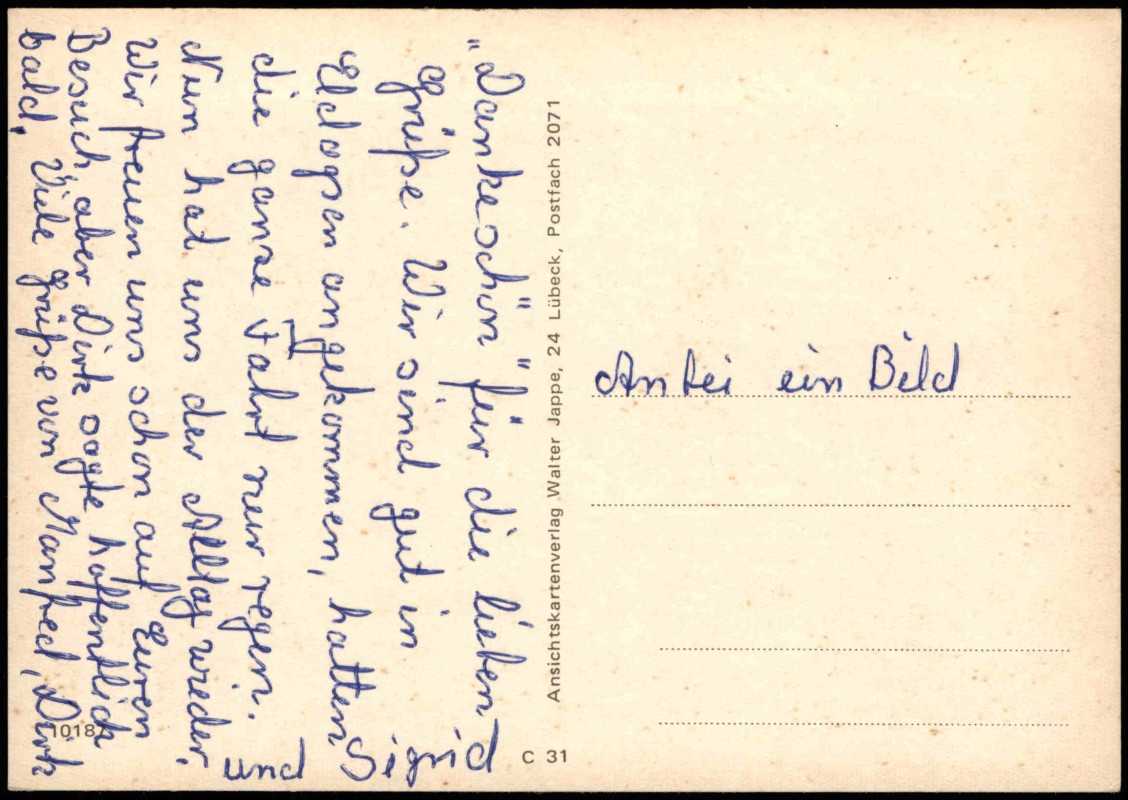 "Dankeschön" für die lieben
Grüße. Wir sind gut in
angekommen, hatten
die ganze Fahrt nur regen.
Nun hat uns der Alltag wieder.
Wir freuen uns schon auf Euren
Besuch, aber Dirk sagte hoffentlich
bald. Viele Grüße von Manfred, Dirk
und Sigrid
Ansichtskartenverlag Walter Jappe, 24 Lübeck, Postfach 2071
Anbei ein Bild
1018
C 31